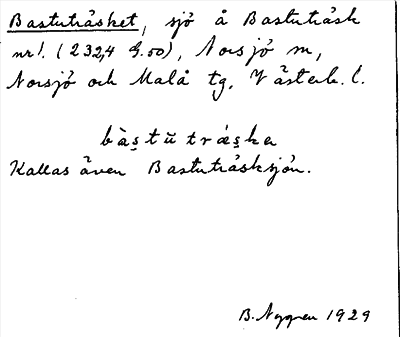 Bastuträsket, sjö å Bastuträsk
nr 1. (232,4 G.50), Norsjö sn,
Norsjö och Malå tg, Västerb. l.
bàs̱tŭtrǽs̱ke
Kallas även Bastuträsksjön.
B. Nygren 1929